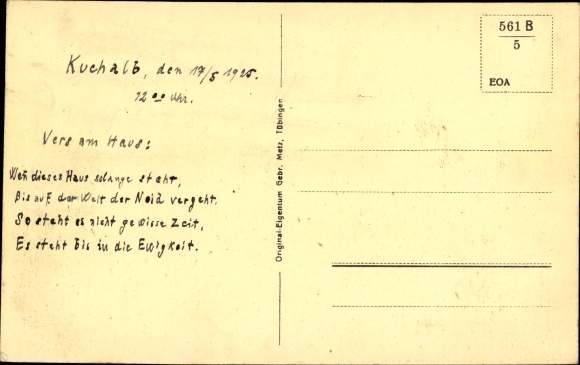 Kuchalb, den 17/5 1925.
12 00 Uhr.
Vers am Haus:
Wen dieses Haus solange steht,
Bis auf der Welt der Neid vergeht.
So steht es nicht gewisse Zeit,
Es steht bis in die Ewigkeit.
Original-Eigentum Gebr. Metz, Tübingen
561 B
5
EOA